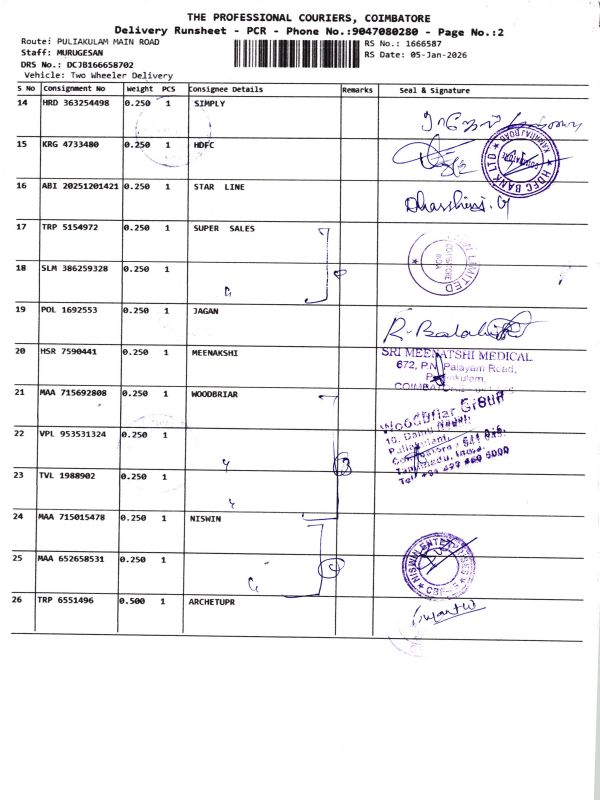 THE PROFESSIONAL COURIERS, COIMBATORE
Delivery Runsheet - PCR - Phone No.:9047080280 - Page No.:2
Route: PULIAKULAM MAIN ROAD
RS No.: 1666587
Staff: MURUGESAN
RS Date: 05-Jan-2026
DRS No.: DCJB166658702
Vehicle: Two Wheeler Delivery
S No Consignment No Weight PCS Consignee Details Remarks Seal & Signature
14 HRD 363254498 0.250 1 SIMPLY
15 KRG 4733480 0.250 1 HDFC
HDFC BANK LTD
16 ABI 20251201421 0.250 1 STAR LINE
Dharshini.G
17 TRP 5154972 0.250 1 SUPER SALES
LIMITED
18 SLM 386259328 0.250 1
19 POL 1692553 0.250 1 JAGAN
20 HSR 7590441 0.250 1 MEENAKSHI
SRI MEENATSHI MEDICAL
672, P.N. Palayam Road,
21 MAA 715692808 0.250 1 WOODBRIAR
WOODBriar GrOUP
22 VPL 953531324 0.250 1
23 TVL 1988902 0.250 1
24 MAA 715015478 0.250 1 NISWIN
25 MAA 652658531 0.250 1
NISWIN ENTERPRISES
26 TRP 6551496 0.500 1 ARCHETUPR